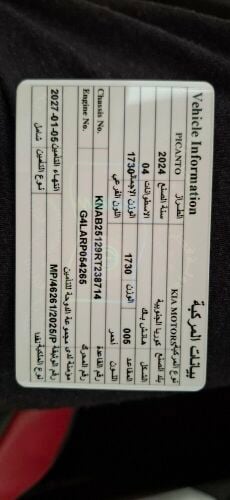 Vehicle Information بيانات المركبة
الطراز PICANTO نوع المركبة KIA MOTORS
سنة الصنع 2024 بلد الصنع كوريا الجنوبية
الاسطوانات 04 الشكل هاتش باك
الوزن الإجمالي 1730 الوزن 1730 المقاعد 005
اللون الفرعي اللون أحمر
Chassis No. KNAB25129RT238714 رقم القاعدة
Engine No. G4LARP054265 رقم المحرك
مؤمنة لدى مجموعة الدوحة للتأمين
انتهاء التأمين 2027-01-05 رقم الوثيقة MP/46261/2025/P
نوع التأمين شامل نوع الملكية